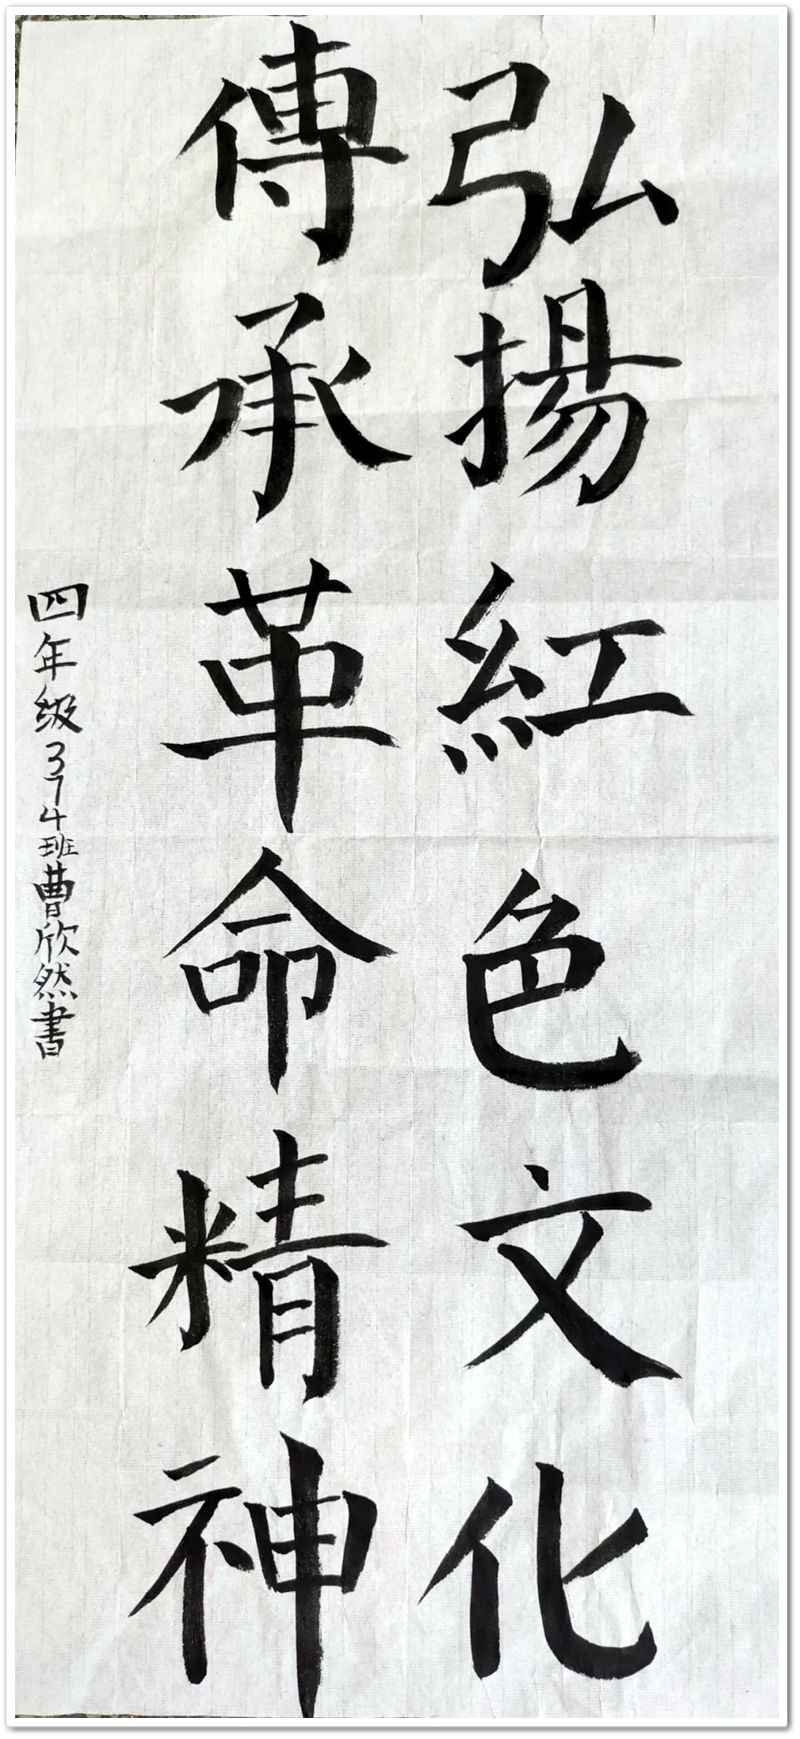 弘揚紅色文化
傳承革命精神
四年級374班曹欣然書